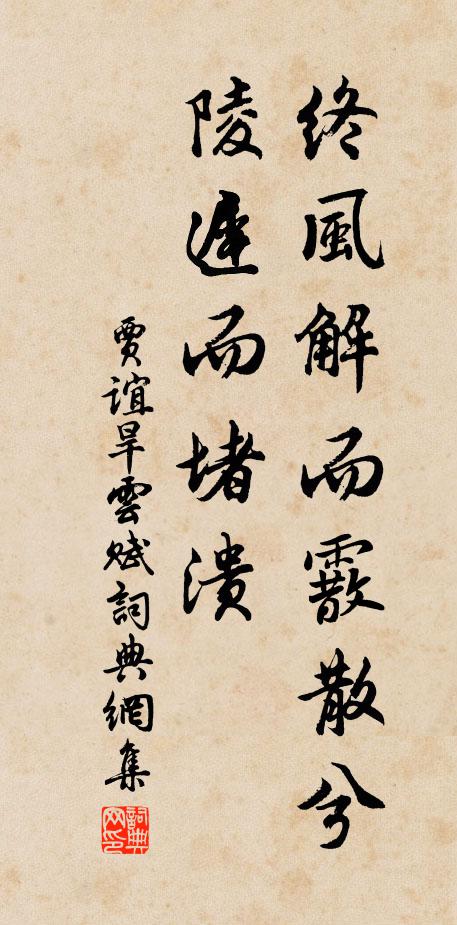 終風解而霰散兮
陵遲而堵潰
賈誼旱雲賦詞典網集
詞典网印